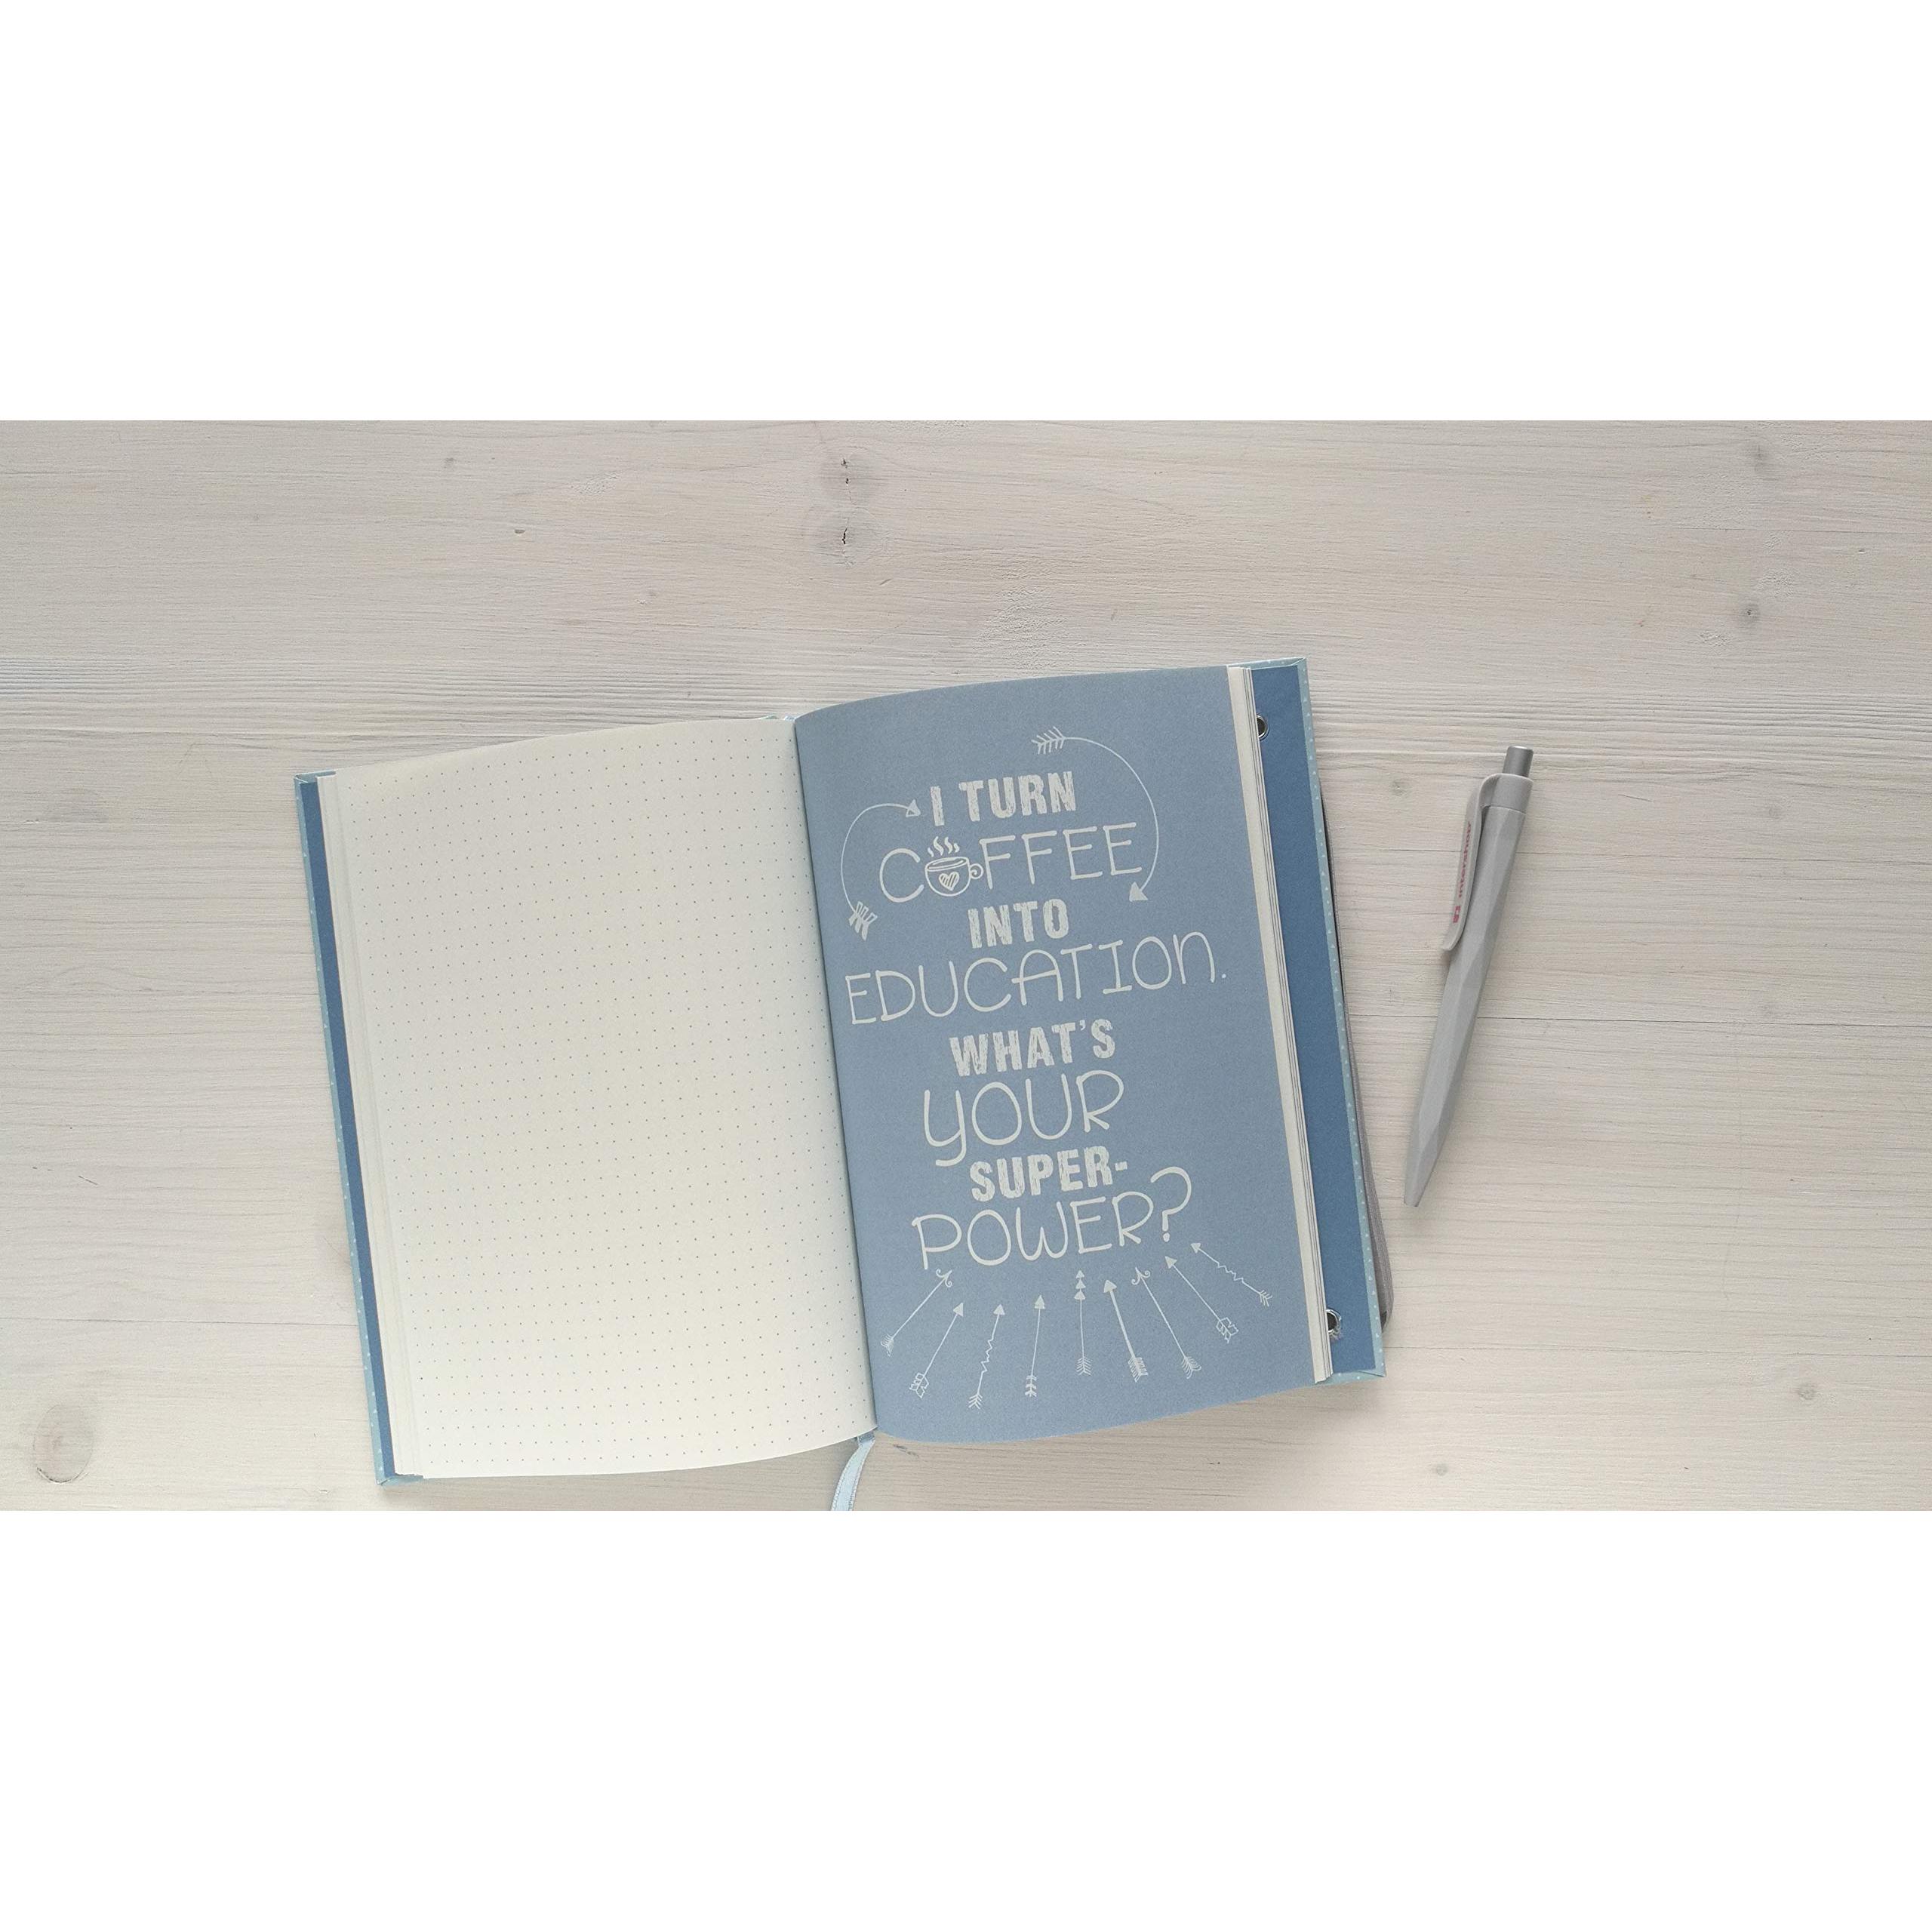 I TURN
COFFEE
INTO
EDUCATION.
WHAT'S
YOUR
SUPER-
POWER?